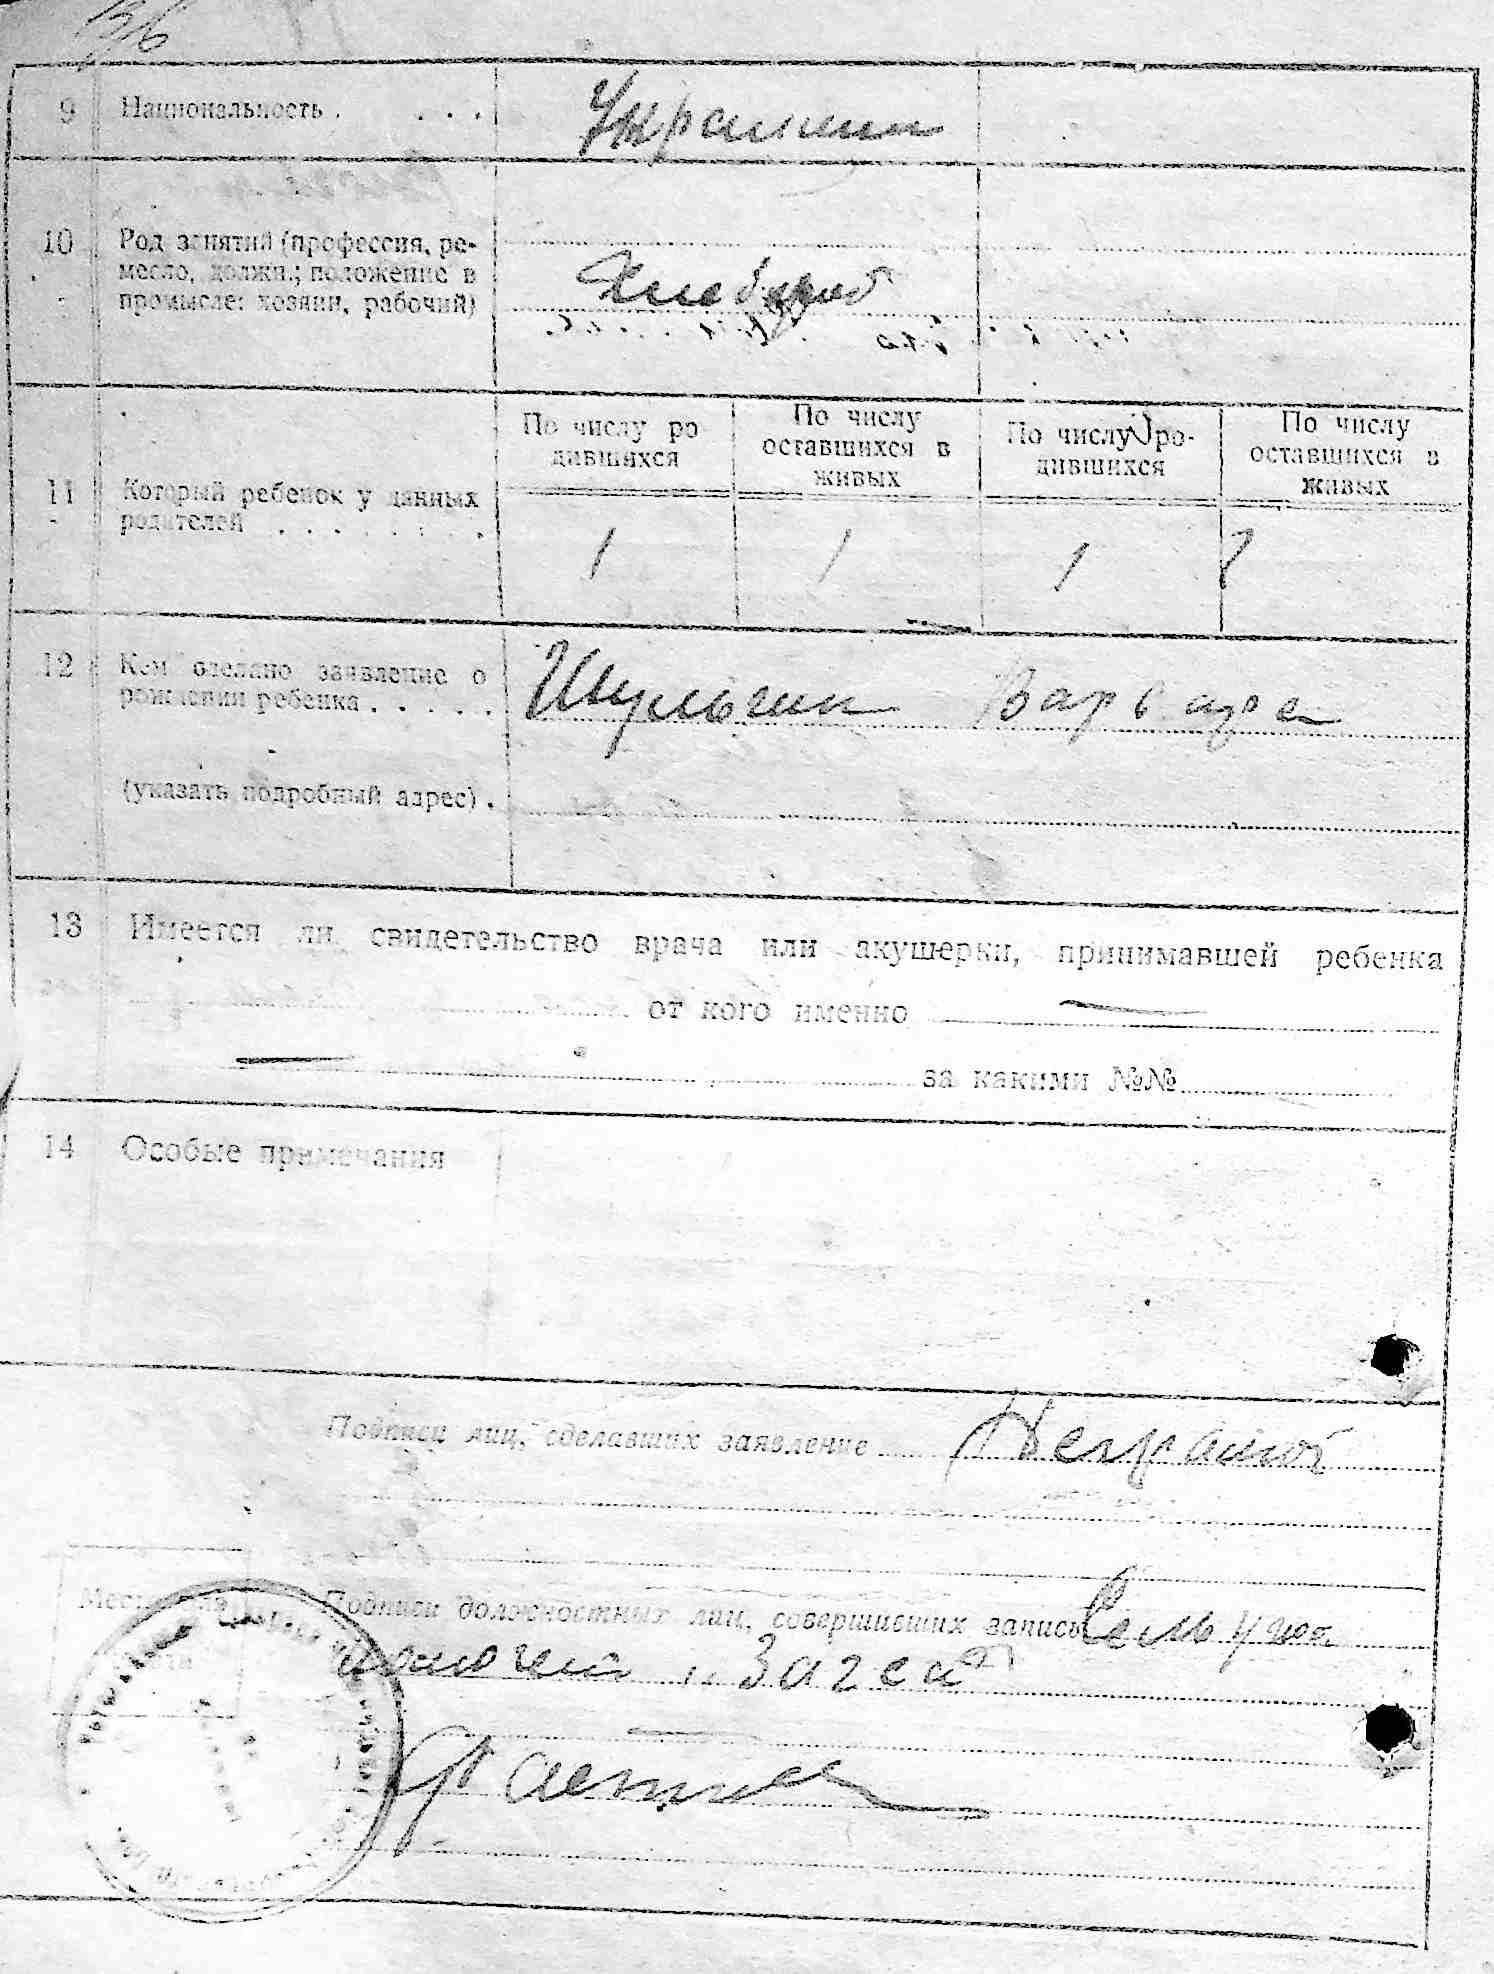 9 Национальность . . . . Украинин
10 Род занятий (профессия, ре-
месло, должн.; положение в
промысле: хозяин, рабочий)
Хлебороб
По числу ро
дившихся
По числу
оставшихся в
живых
По числу ро-
дившихся
По числу
оставшихся в
живых
11 Который ребенок у данных
родителей . . . . . . . .
1 1 1
12 Кем сделано заявление о
рождении ребенка . . . . .
Шульгин Варвара
(указать подробный адрес) .
13 Имеется ли свидетельство врача или акушерки, принимавшей ребенка
от кого именно —
— за какими №№
14 Особые примечания
Подписи лиц, сделавших заявление Неграмот
Подписи должностных лиц, совершивших запись Сель упол.
Загса